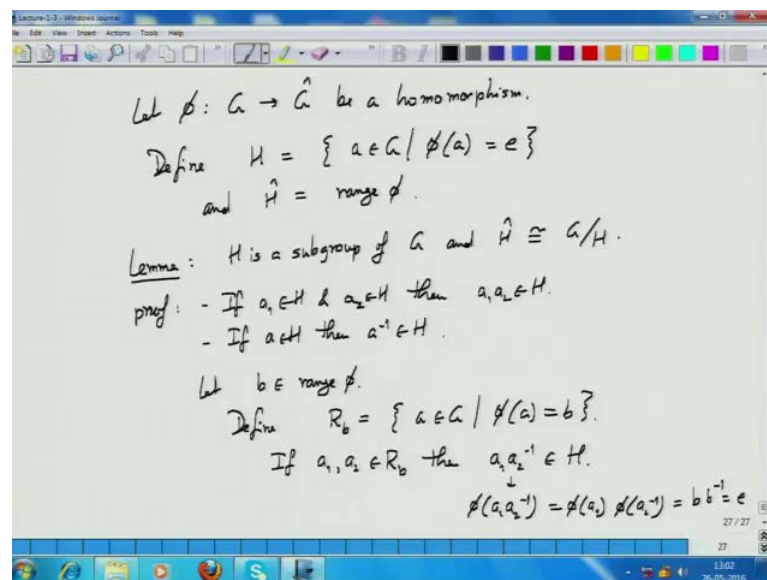 Lecture-1-3 - Windows Journal
File Edit View Insert Actions Tools Help
Let ϕ: G → Ĝ be a homomorphism.
Define H = { a ∈ G | ϕ(a) = e }
and Ĥ = range ϕ.
Lemma: H is a subgroup of G and Ĥ ≅ G/H.
proof: - If a₁ ∈ H & a₂ ∈ H then a₁a₂ ∈ H.
- If a ∈ H then a⁻¹ ∈ H.
Let b ∈ range ϕ.
Define R_b = { a ∈ G | ϕ(a) = b }.
If a₁, a₂ ∈ R_b then a₁a₂⁻¹ ∈ H.
↓
ϕ(a₁a₂⁻¹) = ϕ(a₁) ϕ(a₂⁻¹) = b b⁻¹ = e
27 / 27
27
13:02
26-05-2016